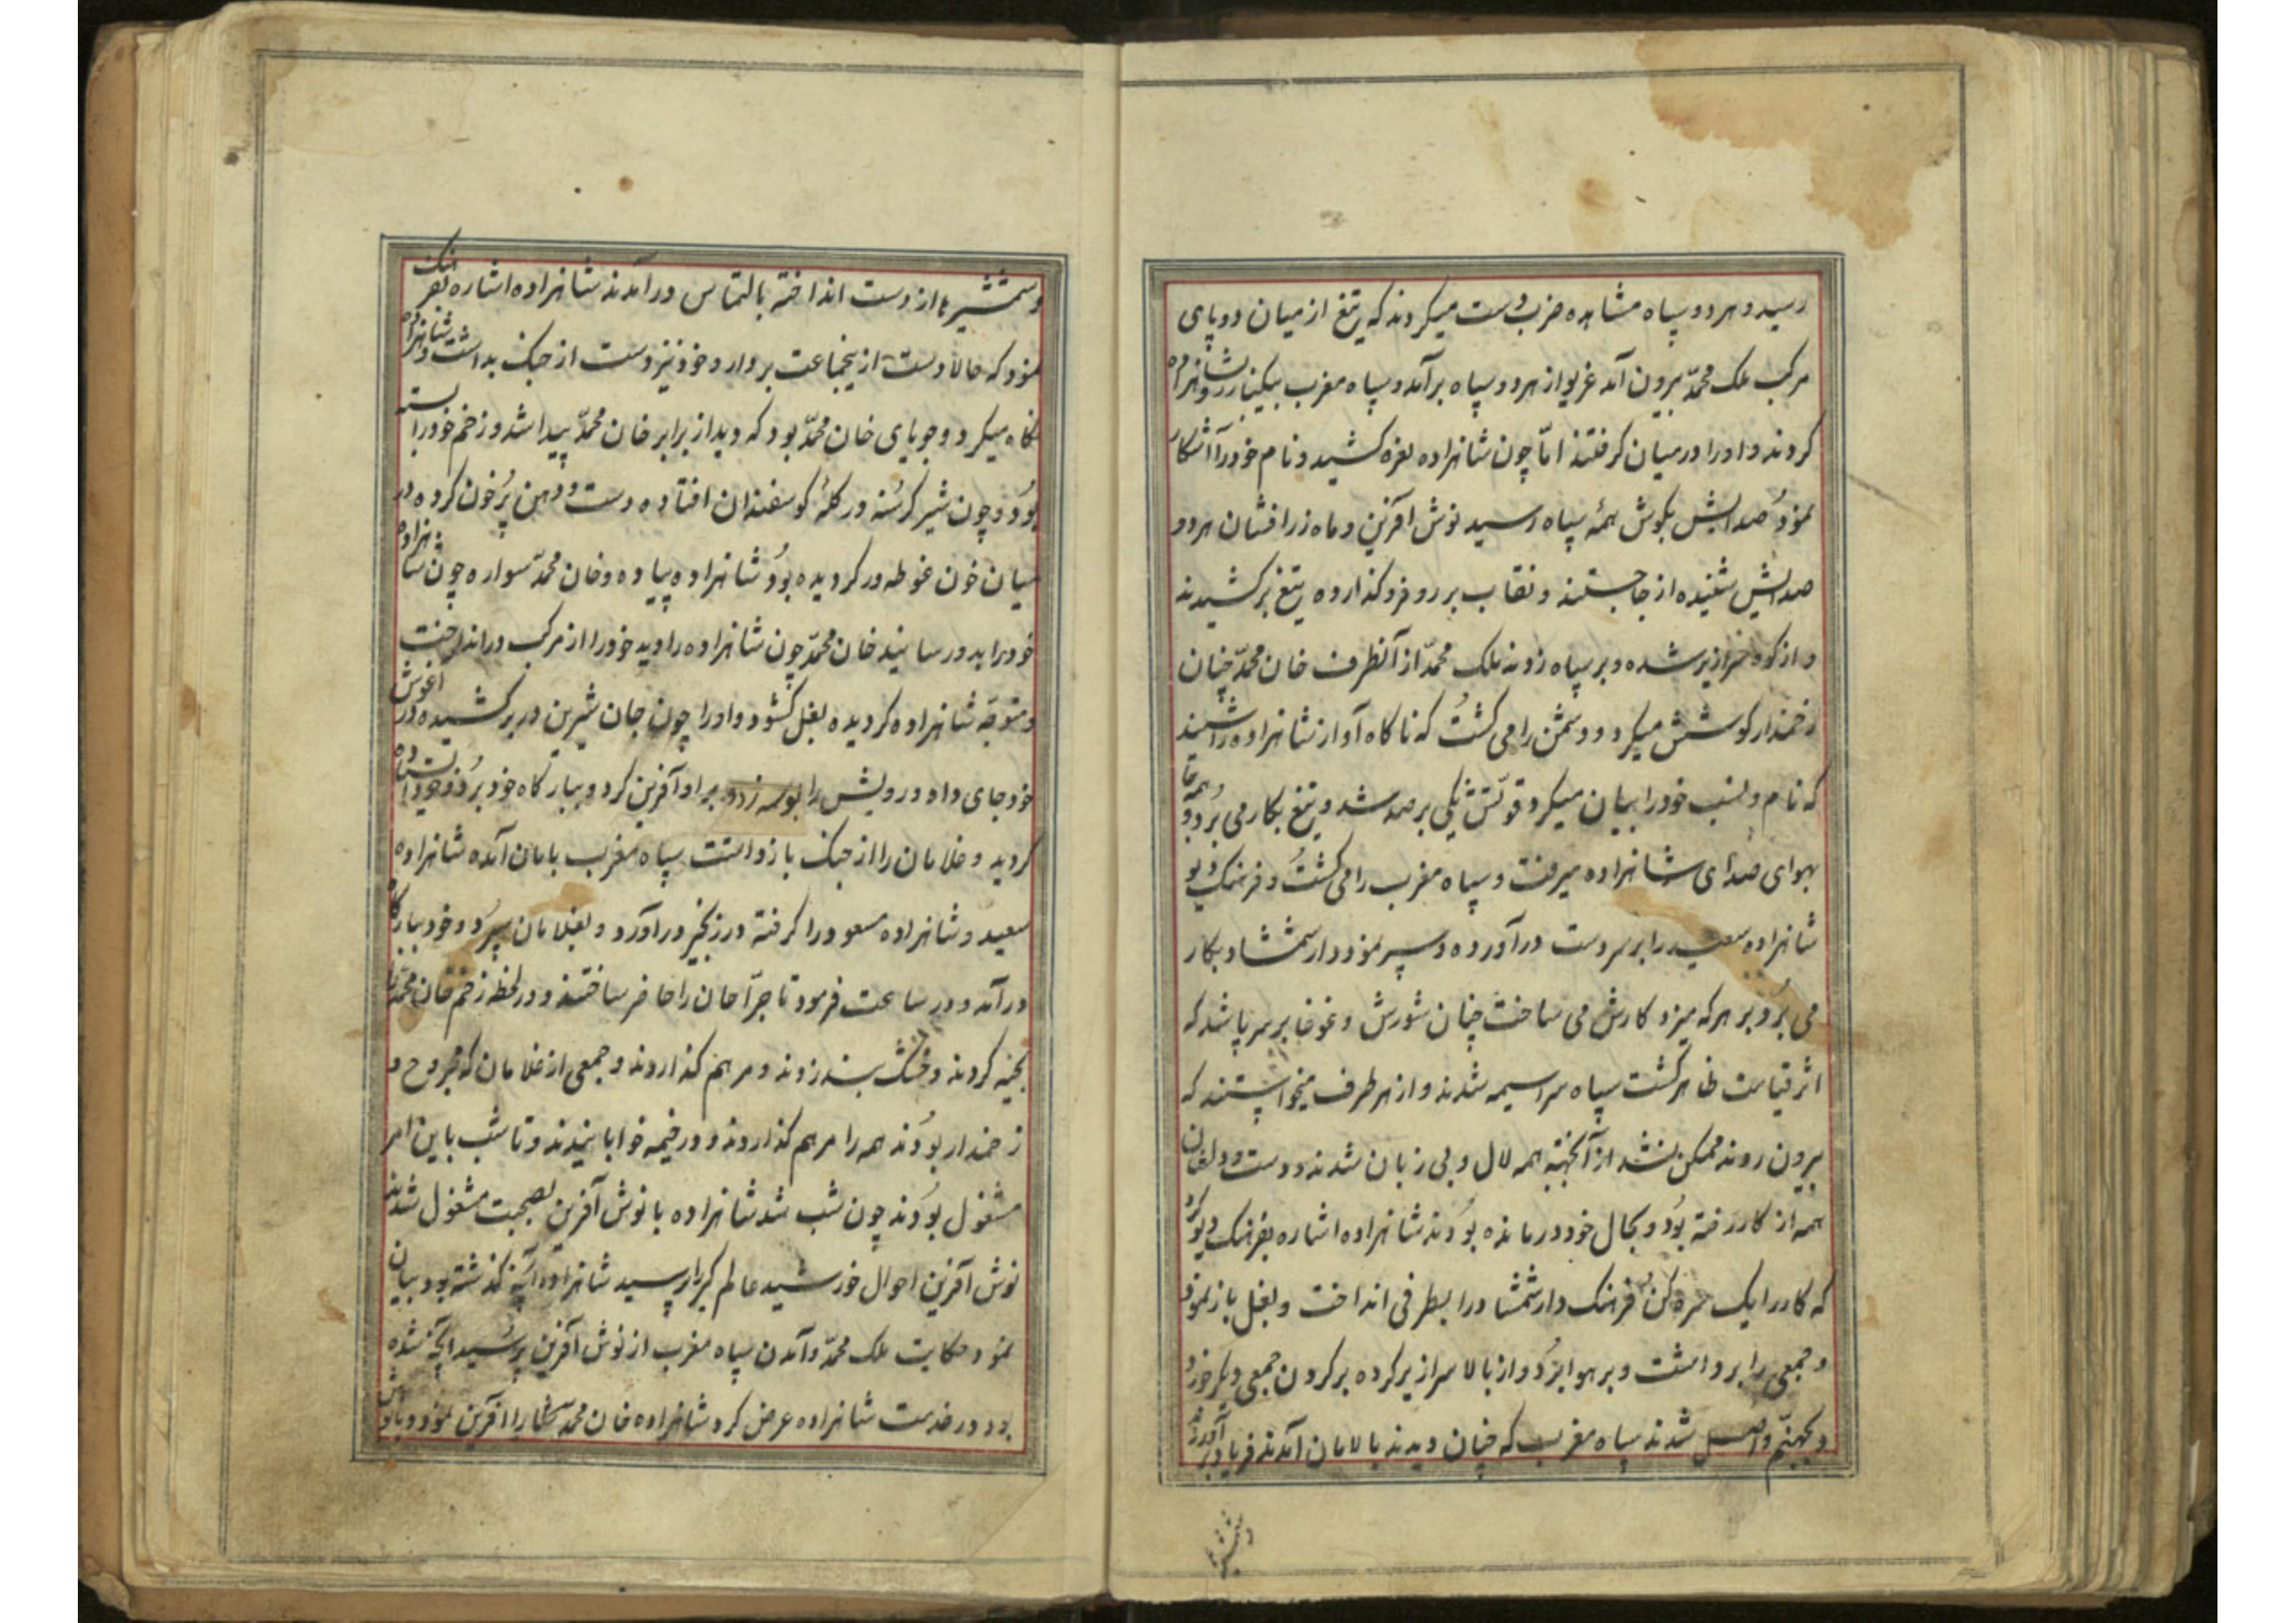 رسید و هر دو سپاه مشاهده ضرب دست میکردند که تیغ از میان دو پای
مرکب ملک محمّد بیرون آمد غریو از هر دو سپاه برآمد و سپاه مغرب بیکبار رو بشاهزاده
کردند و او را در میان گرفتند امّا چون شاهزاده نعره کشید و نام خود را آشکار
نمود صدایش بگوش همهٔ سپاه رسید نوش آفرین و ماه زرافشان هر دو
صدایش شنیده از جا جستند و نقاب بر رو فرو گذارده تیغ برکشیدند
و از کوه سرازیر شده و بر سپاه زدند ملک محمّد از آنطرف خان محمّد چنان
زخمدار کوشش میکرد و دشمن را می کشت که ناگاه آواز شاهزاده را شنید
که نام و نسب خود را بیان میکرد قوّتش یکی بر صد شد و تیغ بکار می برد و
بهوای صدای شاهزاده میرفت و سپاه مغرب را می کشت و فرهنگ دیو
شاهزاده سعید را بر سر دست درآورده و سپر نمود دار شمشاد بکار
می برد و بر هر که میزد کارش می ساخت چنان شورش و غوغا بر سر پا شد که
اثر قیامت ظاهر گشت سپاه سراسیمه شدند و از هر طرف میخواستند که
بیرون روند ممکن نشد از آنجهة همه لال و بی زبان شدند دست و دلشان
همه از کار رفته بود و بحال خود درمانده بودند شاهزاده اشاره بفرهنگ دیو کرد
که کار را یک سره کن فرهنگ دار شمشاد را بطرفی انداخت و بغل باز نمود
و جمعی را برداشت و بر هوا برد و از بالا سرازیر کرده بر گردن جمعی دیگر خورد
و بجهنّم واصل شدند سپاه مغرب که چنان دیدند بالامان آمدند فریاد برآوردند
و شمشیر
و شمشیرها از دست انداخته بالتماس درآمدند شاهزاده اشاره بفرهنگ
نمود که حالا دست از اینجماعت بردار و خود نیز دست از جنگ بداشت و شاهزاده
نگاه میکرد و جویای خان محمّد بود که دید از برابر خان محمّد پیدا شد و زخم خود را بسته
بود و چون شیر گرسنه در گلهٔ گوسفندان افتاده دست و دهن پُر خون کرده در
میان خون غوطه ور گردیده بود شاهزاده پیاده و خان محمّد سواره چون شاهزاده
خود را بدو رسانید خان محمّد چون شاهزاده را دید خود را از مرکب در انداخت
و متوجّه شاهزاده گردیده بغل گشود و او را چون جان شیرین در بر کشیده در آغوش
خود جای داد و رویش را بوسه زد و بر او آفرین کرد و ببارگاه خود برد و خود
گردید و غلامان را از جنگ بازداشت سپاه مغرب بامان آمده شاهزاده
سعید و شاهزاده مسعود را گرفته در زنجیر درآورد و بغلامان سپرد و خود ببارگاه
درآمد و در ساعت فرمود تا جرّاحان را حاضر ساختند و در لحظه زخم خان محمّد را
بخیه کردند و خشک بند زدند و مرهم گذاردند و جمعی از غلامان که مجروح و
زخمدار بودند همه را مرهم گذاردند و در خیمه خوابانیدند و تا شب باین امر
مشغول بودند چون شب شد شاهزاده با نوش آفرین بصحبت مشغول شدند
نوش آفرین احوال خورشید عالم گیر را پرسید شاهزاده آنچه گذشته بود بیان
نمود و حکایت ملک محمّد و آمدن سپاه مغرب از نوش آفرین پرسید آنچه شده
بود در خدمت شاهزاده عرض کرد شاهزاده خان محمد را آفرین نمود و